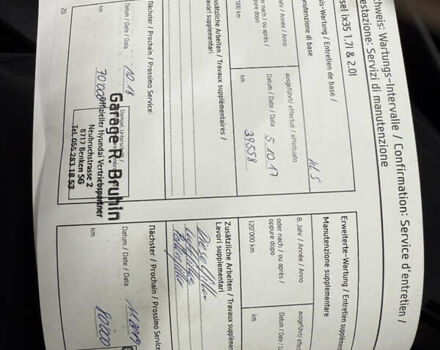 chweis: Wartungs-Intervalle / Confirmation: Service d'entretien /
estazione: Servizi di manutenzione
sel ix35 1.7l & 2.0l
s-Wartung / Entretien de base /
Manutenzione di base
J. / Année / Anno
oder nach / ou après /
oppure dopo
'000 km
ausgeführt / effectué / effettuato
Datum / Date / Data 5.10.17
km 39558
Zusätzliche Arbeiten / Travaux supplémentaires /
Lavori supplementari
Nächster / Prochain / Prossimo Service:
Datum / Date / Data 10.19
km 70'000
20
Garage R. Bruhin
Offizieller Hyundai Vertriebspartner
Neubruchstrasse 2
8717 Benken SG
Tel. 055 283 18 53
Erweiterte-Wartung / Entretien supplém
Manutenzione supplementare
8. Jahr / Année / Anno
oder nach / ou après /
oppure dopo
120'000 km
ausgeführt / effectué / effe
Datum / Date / Data
km
Zusätzliche Arbeiten / Travaux supplément
Lavori supplementari
Nächster / Prochain / Prossimo Service:
Datum / Date / Data
km